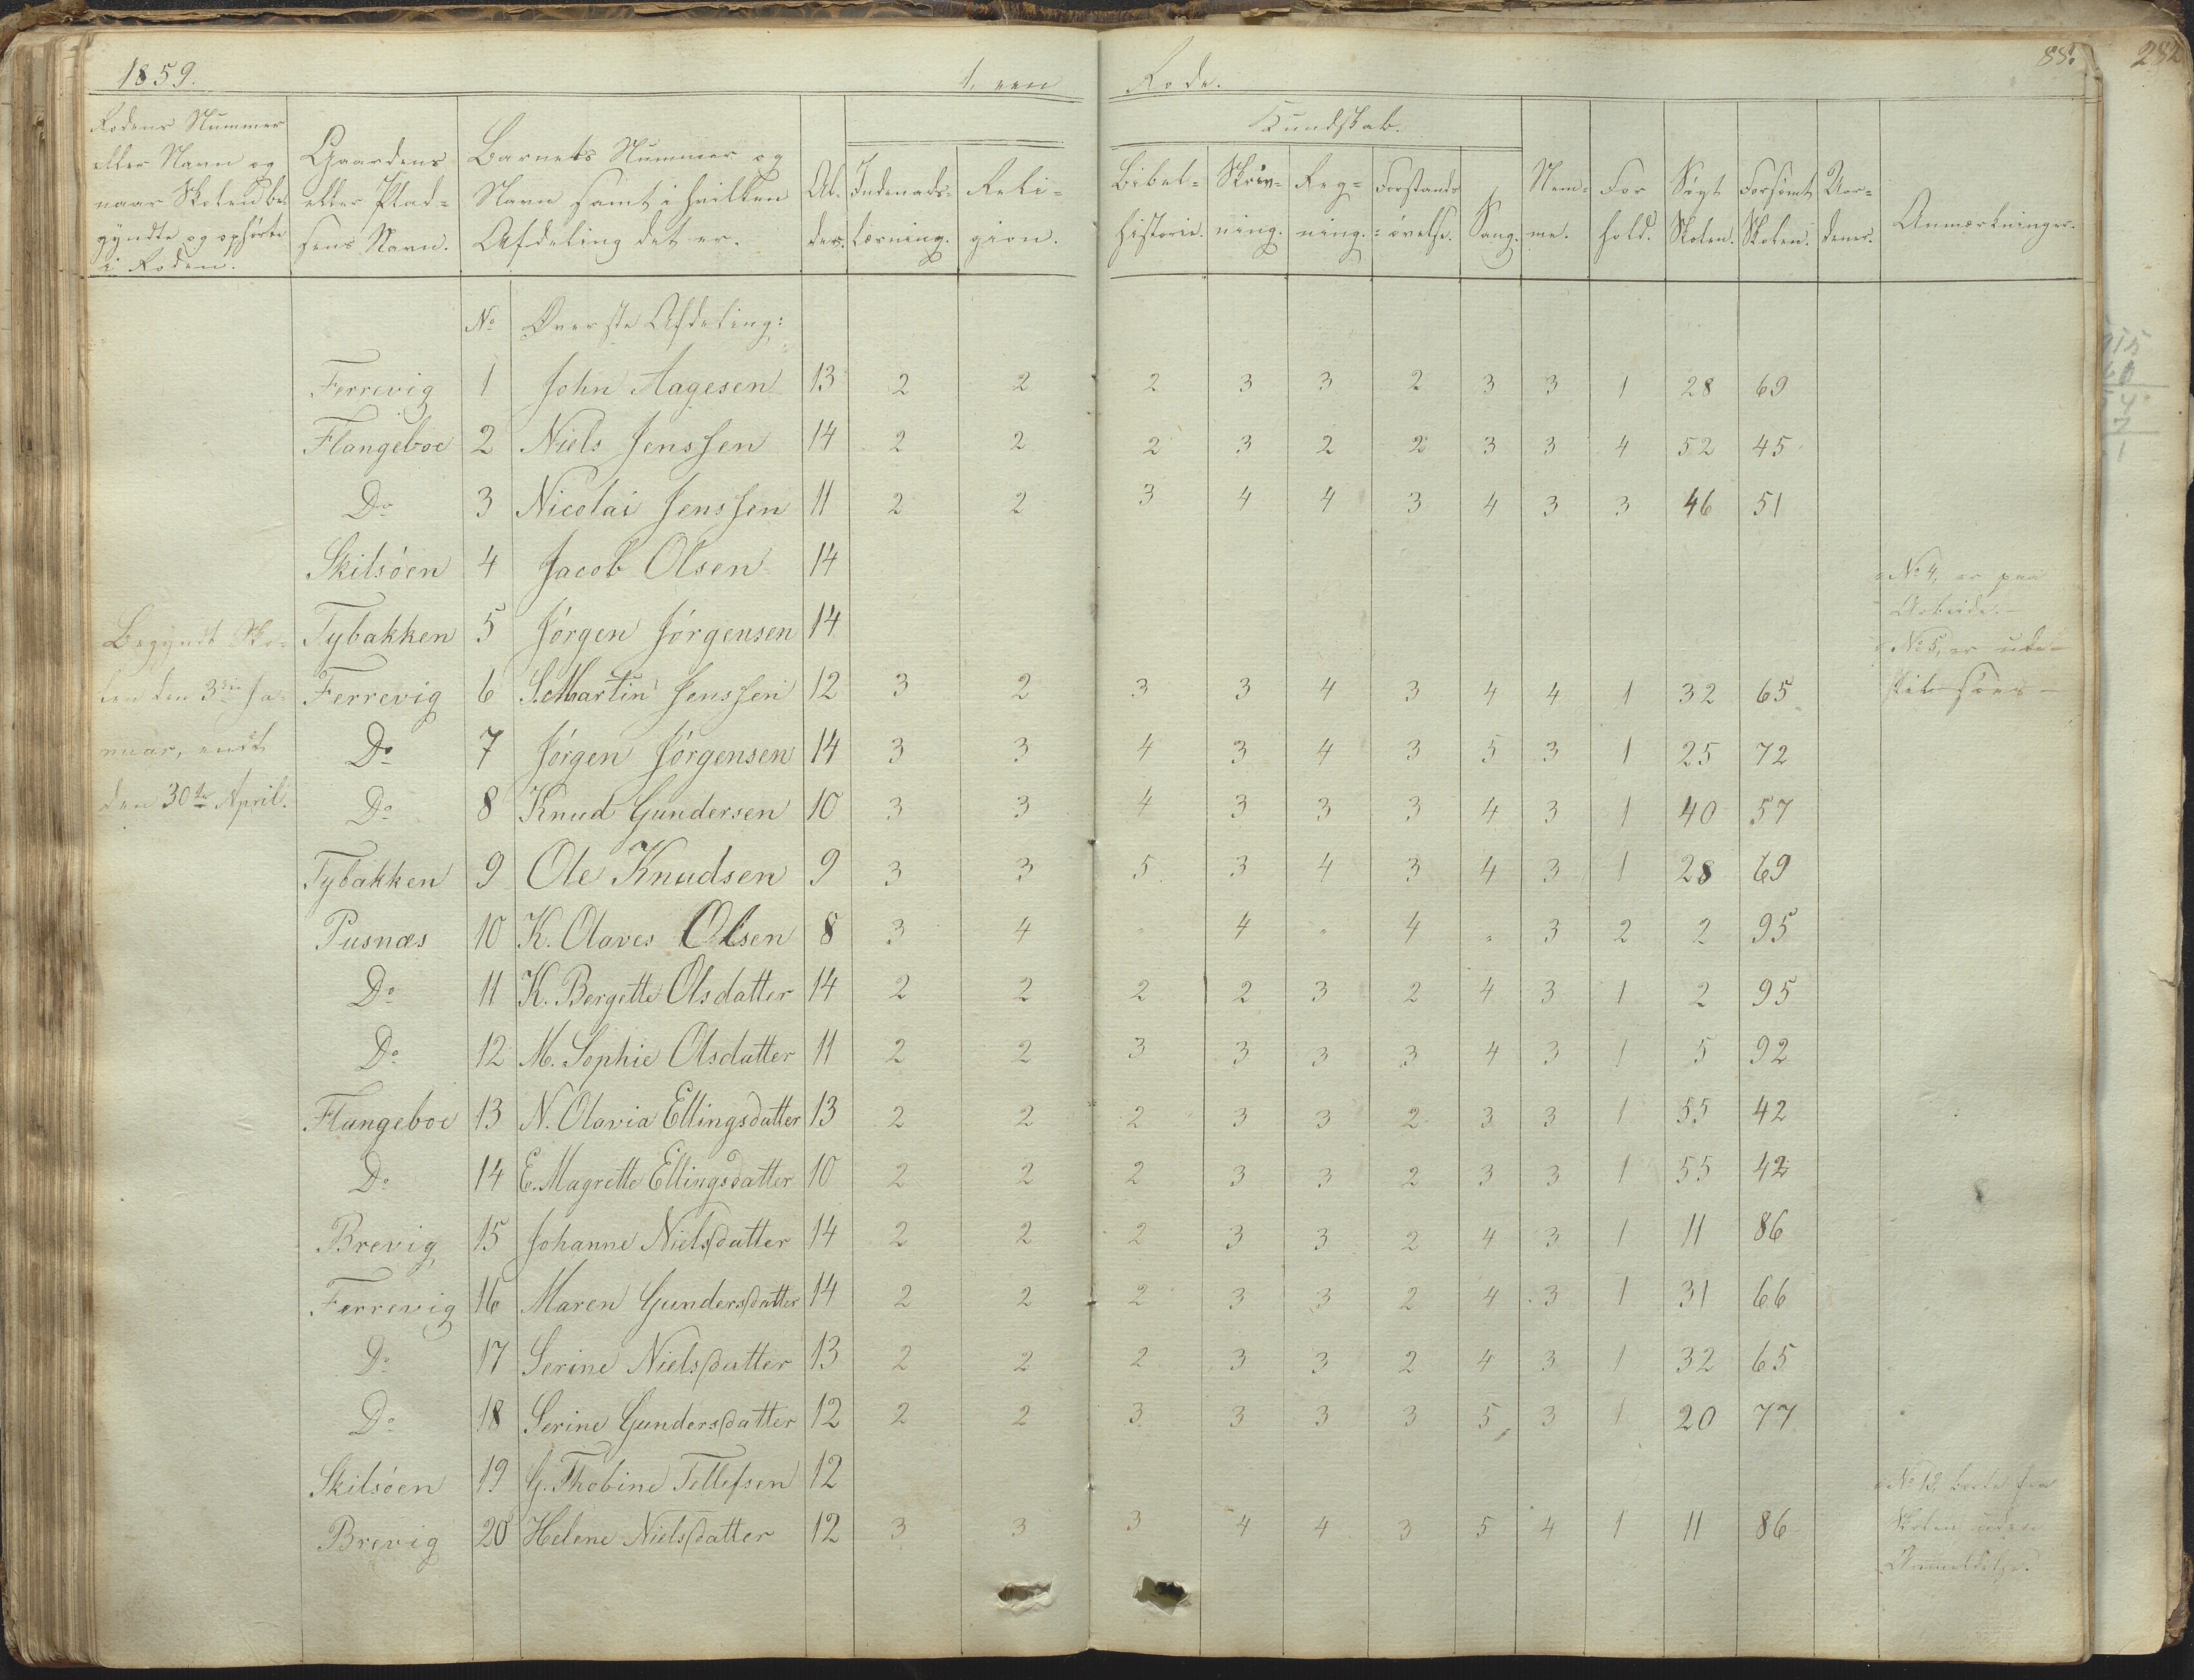 1859. 1. een Rode. 88. 282
Rodens Nummer eller Navn og naar Skolen begyndte og ophørte i Roden.
Gaardens eller Pladsens Navn.
Barnets Nummer og Navn samt i hvilken Afdeling det er.
Alder.
Kundskab.
Indenadslæsning.
Religion.
Bibelhistorie.
Skrivning.
Regning.
Forstandsøvelse.
Sang.
Nemme.
Forhold.
Søgt Skolen.
Forsømt Skolen.
Uordener.
Anmærkninger.
Begyndt Skolen den 3die Januar, endt den 30te April.
No Øverste Afdeling:
Ferrevig 1 John Aagesen 13 2 2 2 3 3 2 3 3 1 28 69
Flangeboe 2 Niels Jenssen 14 2 2 2 3 2 2 3 3 4 52 45
Do 3 Nicolai Jenssen 11 2 2 3 4 4 3 4 3 3 46 51
Skilsøen 4 Jacob Olsen 14 No 4, er paa Arbeide.
Tybakken 5 Jørgen Jørgensen 14 No 5, er
Ferrevig 6 S. Martin Jenssen 12 3 2 3 3 4 3 4 4 1 32 65
Do 7 Jørgen Jørgensen 14 3 3 4 3 4 3 5 3 1 25 72
Do 8 Knud Gundersen 10 3 3 4 3 3 3 4 3 1 40 57
Tybakken 9 Ole Knudsen 9 3 3 5 3 4 3 4 3 1 28 69
Pusnæs 10 K. Olaves Olsen 8 3 4 " 4 " 4 " 3 2 2 95
Do 11 K. Bergette Olsdatter 14 2 2 2 2 3 2 4 3 1 2 95
Do 12 M. Sophie Olsdatter 11 2 2 3 3 3 3 4 3 1 5 92
Flangeboe 13 N. Olavia Ellingsdatter 13 2 2 2 3 3 2 3 3 1 55 42
Do 14 E. Magrette Ellingsdatter 10 2 2 2 3 3 2 3 3 1 55 42
Brevig 15 Johanne Nielsdatter 14 2 2 2 3 3 2 4 3 1 11 86
Ferrevig 16 Maren Gundersdatter 14 2 2 2 3 3 2 4 3 1 31 66
Do 17 Serine Nielsdatter 13 2 2 2 3 3 2 4 3 1 32 65
Do 18 Serine Gundersdatter 12 2 2 3 3 3 3 5 3 1 20 77
Skilsøen 19 G. Thobine Tellefsen 12 No 19, borte fra Skolen uden Anmeldelse.
Brevig 20 Helene Nielsdatter 12 3 3 3 4 4 3 5 4 1 11 86